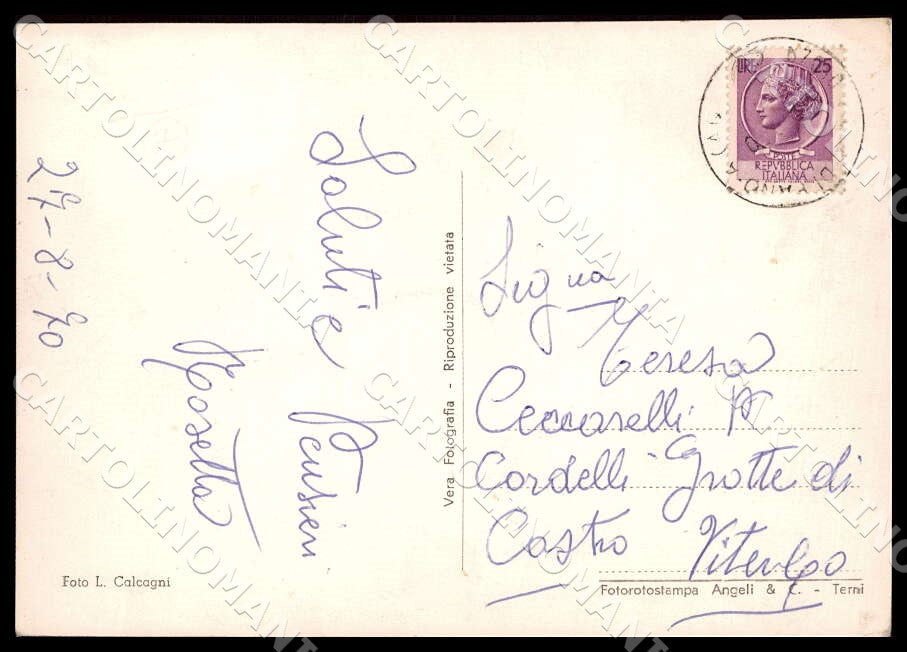 27-8-70
Saluti e
Pensieri
Rosetta
Foto L. Calcagni
Vera Fotografia - Riproduzione vietata
LIRE 25
POSTE
REPVBBLICA
ITALIANA
Sig.na
Teresa
Ceccarelli
Cordelli - Grotte di
Castro Viterbo
Fotorotostampa Angeli & C. - Terni
CARTOLINOMANIA